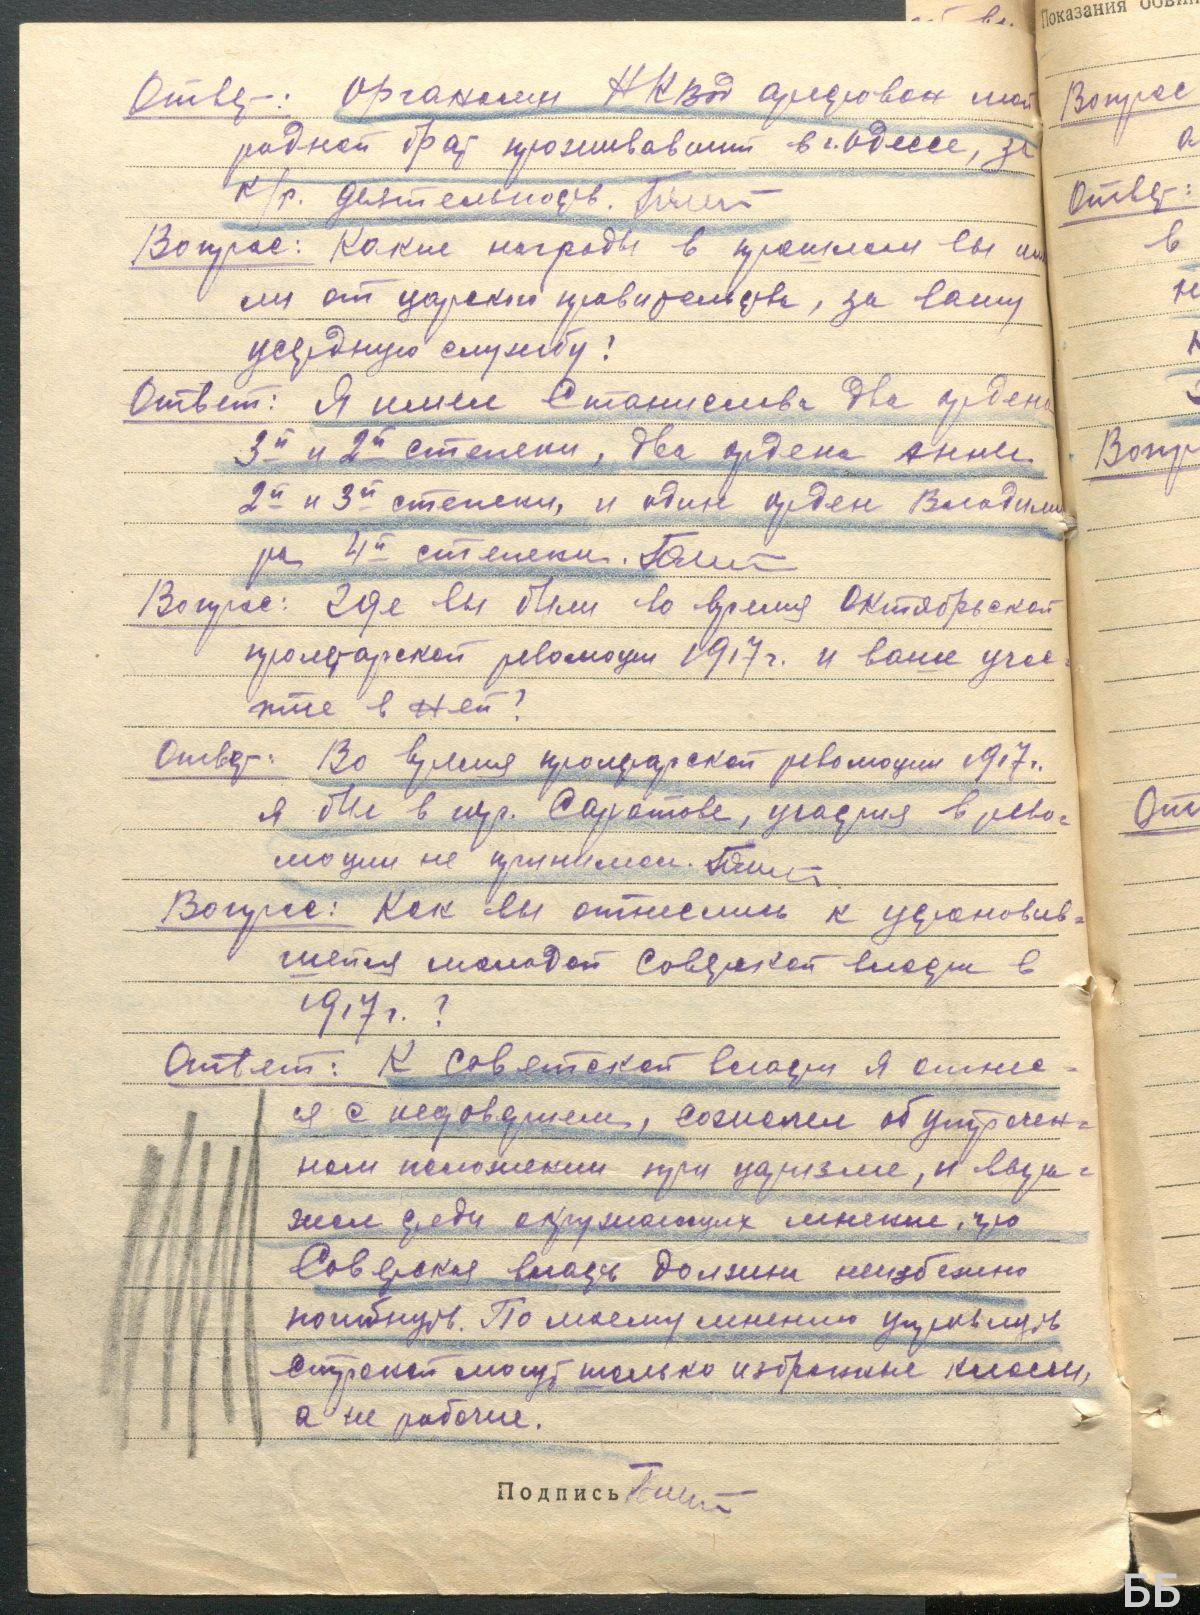 Ответ: Органами НКВД арестован мой
родной брат проживавший в г. Одессе, за
к/р. деятельность.
Вопрос: Какие награды в прошлом вы име
ли от царского правительства, за вашу
усердную службу?
Ответ: Я имел Станислава два ордена
3й и 2й степени, два ордена Анны
2й и 3й степени, и один орден Владими
ра 4й степени.
Вопрос: Где вы были во время Октябрьской
пролетарской революции 1917 г. и ваше учас-
тие в ней?
Ответ: Во время пролетарской революции 1917 г.
я был в гор. Саратове, участия в рево-
люции не принимал.
Вопрос: Как вы отнеслись к установив-
шейся молодой Советской власти в
1917 г. ?
Ответ: К Советской власти я отнес-
ся с недоверием, сожалел об утрачен-
ном положении при царизме, и выра-
жал среди окружающих мнение, что
Советская власть должна неизбежно
погибнуть. По моему мнению управлять
страной могут только избранные классы,
а не рабочие.
Подпись
Показания обвин
Вопрос
Ответ:
в
Вопр
Отв
ББ